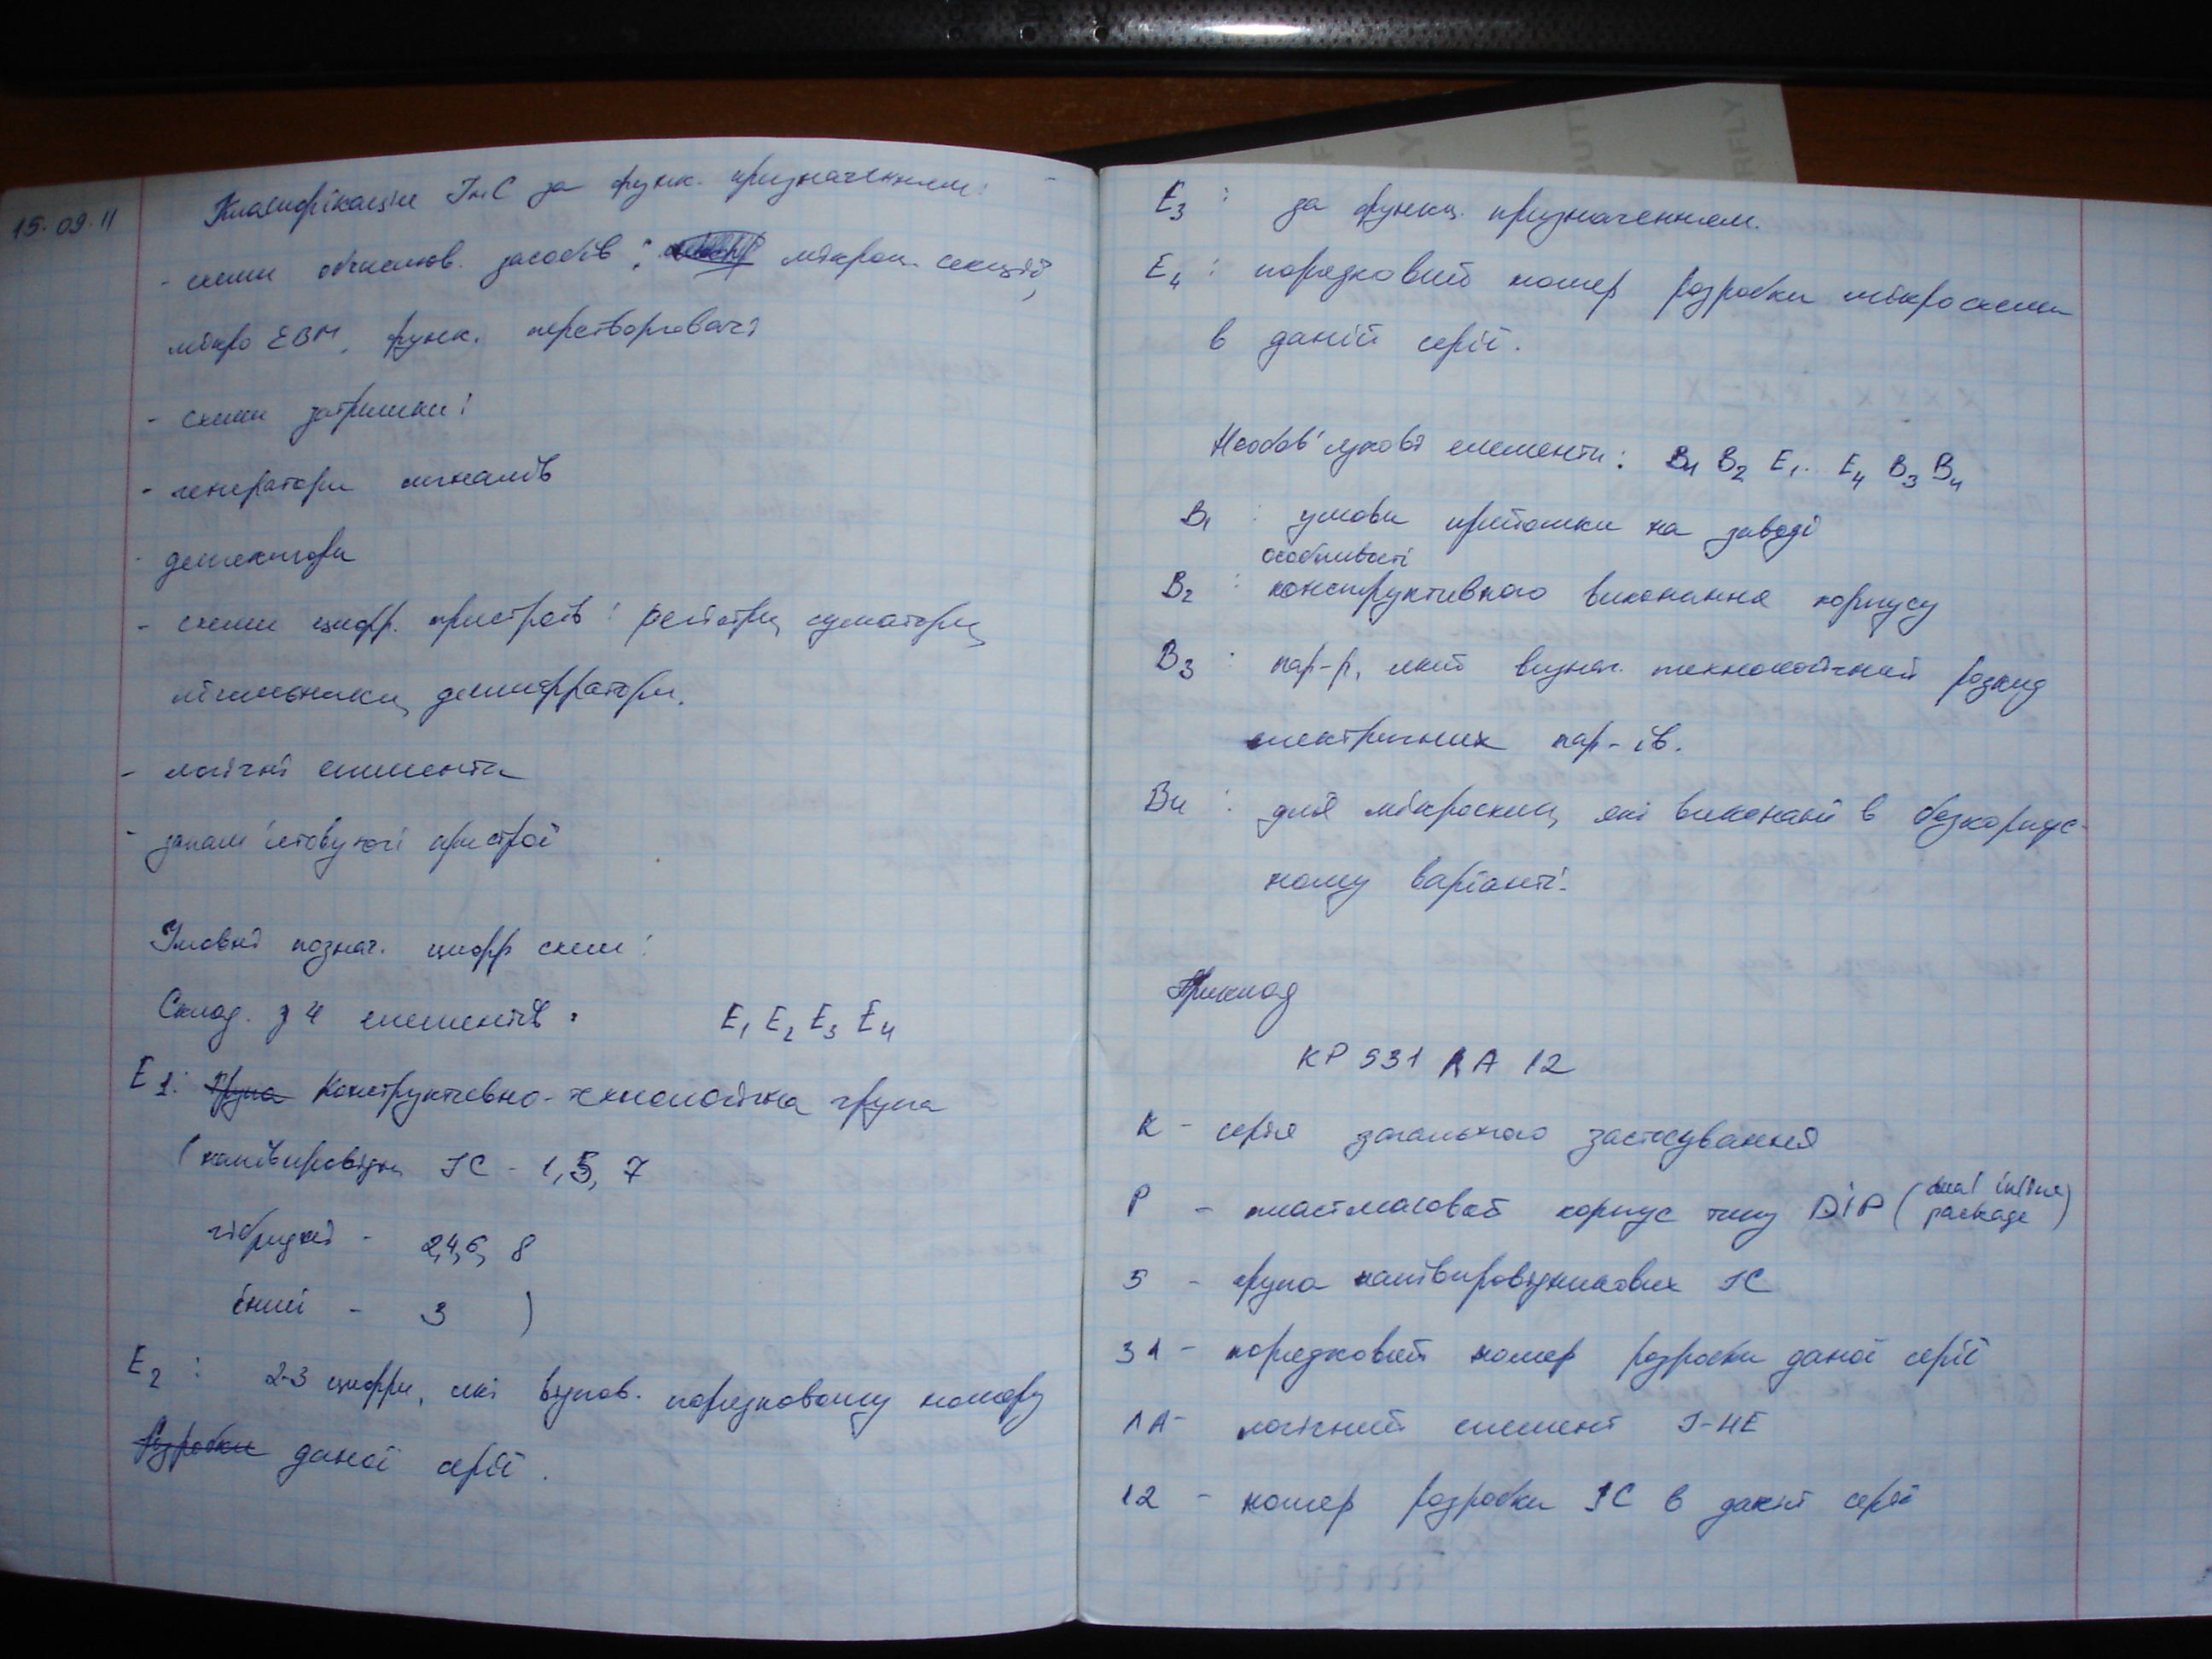 15.09.11
Класифікація ІмС за функ. призначенням:
- схеми обчислюв. засобів: мікроп. секції,
мікро ЕВМ, функ. перетворювачі
- схеми затримки;
- генератори сигналів
- детектори
- схеми цифр. пристроїв: регістри, суматори,
лічильники, дешифратори.
- логічні елементи
- запам'ятовуючі пристрої
Умовні познач. цифр схем:
Склад. з 4 елементів: E1 E2 E3 E4
E1: Група Конструктивно-технологічна група
(напівпровідн. ІС - 1, 5, 7
гібридні - 2,4,6, 8
інші - 3 )
E2: 2-3 цифри, які відпов. порядковому номеру
розробки даної серії.
E3: за функц. призначенням.
E4: порядковий номер розробки мікросхеми
в даній серії.
Необов'язкові елементи: B1 B2 E1.. E4 B3 B4
B1: умови прийомки на заводі
особливості
B2: конструктивного виконання корпусу
B3: пар-р, який визнач. технологічний розкид
електричних пар-ів.
B4: для мікросхем, які виконані в безкорпус-
ному варіанті.
Приклад
КР 531 ЛА 12
К - серія загального застосування
Р - пластмасовий корпус типу DiP (dual inline
package)
5 - група напівпровідникових ІС
31 - порядковий номер розробки даної серії
ЛА - логічний елемент І-НЕ
12 - номер розробки ІС в даній серії